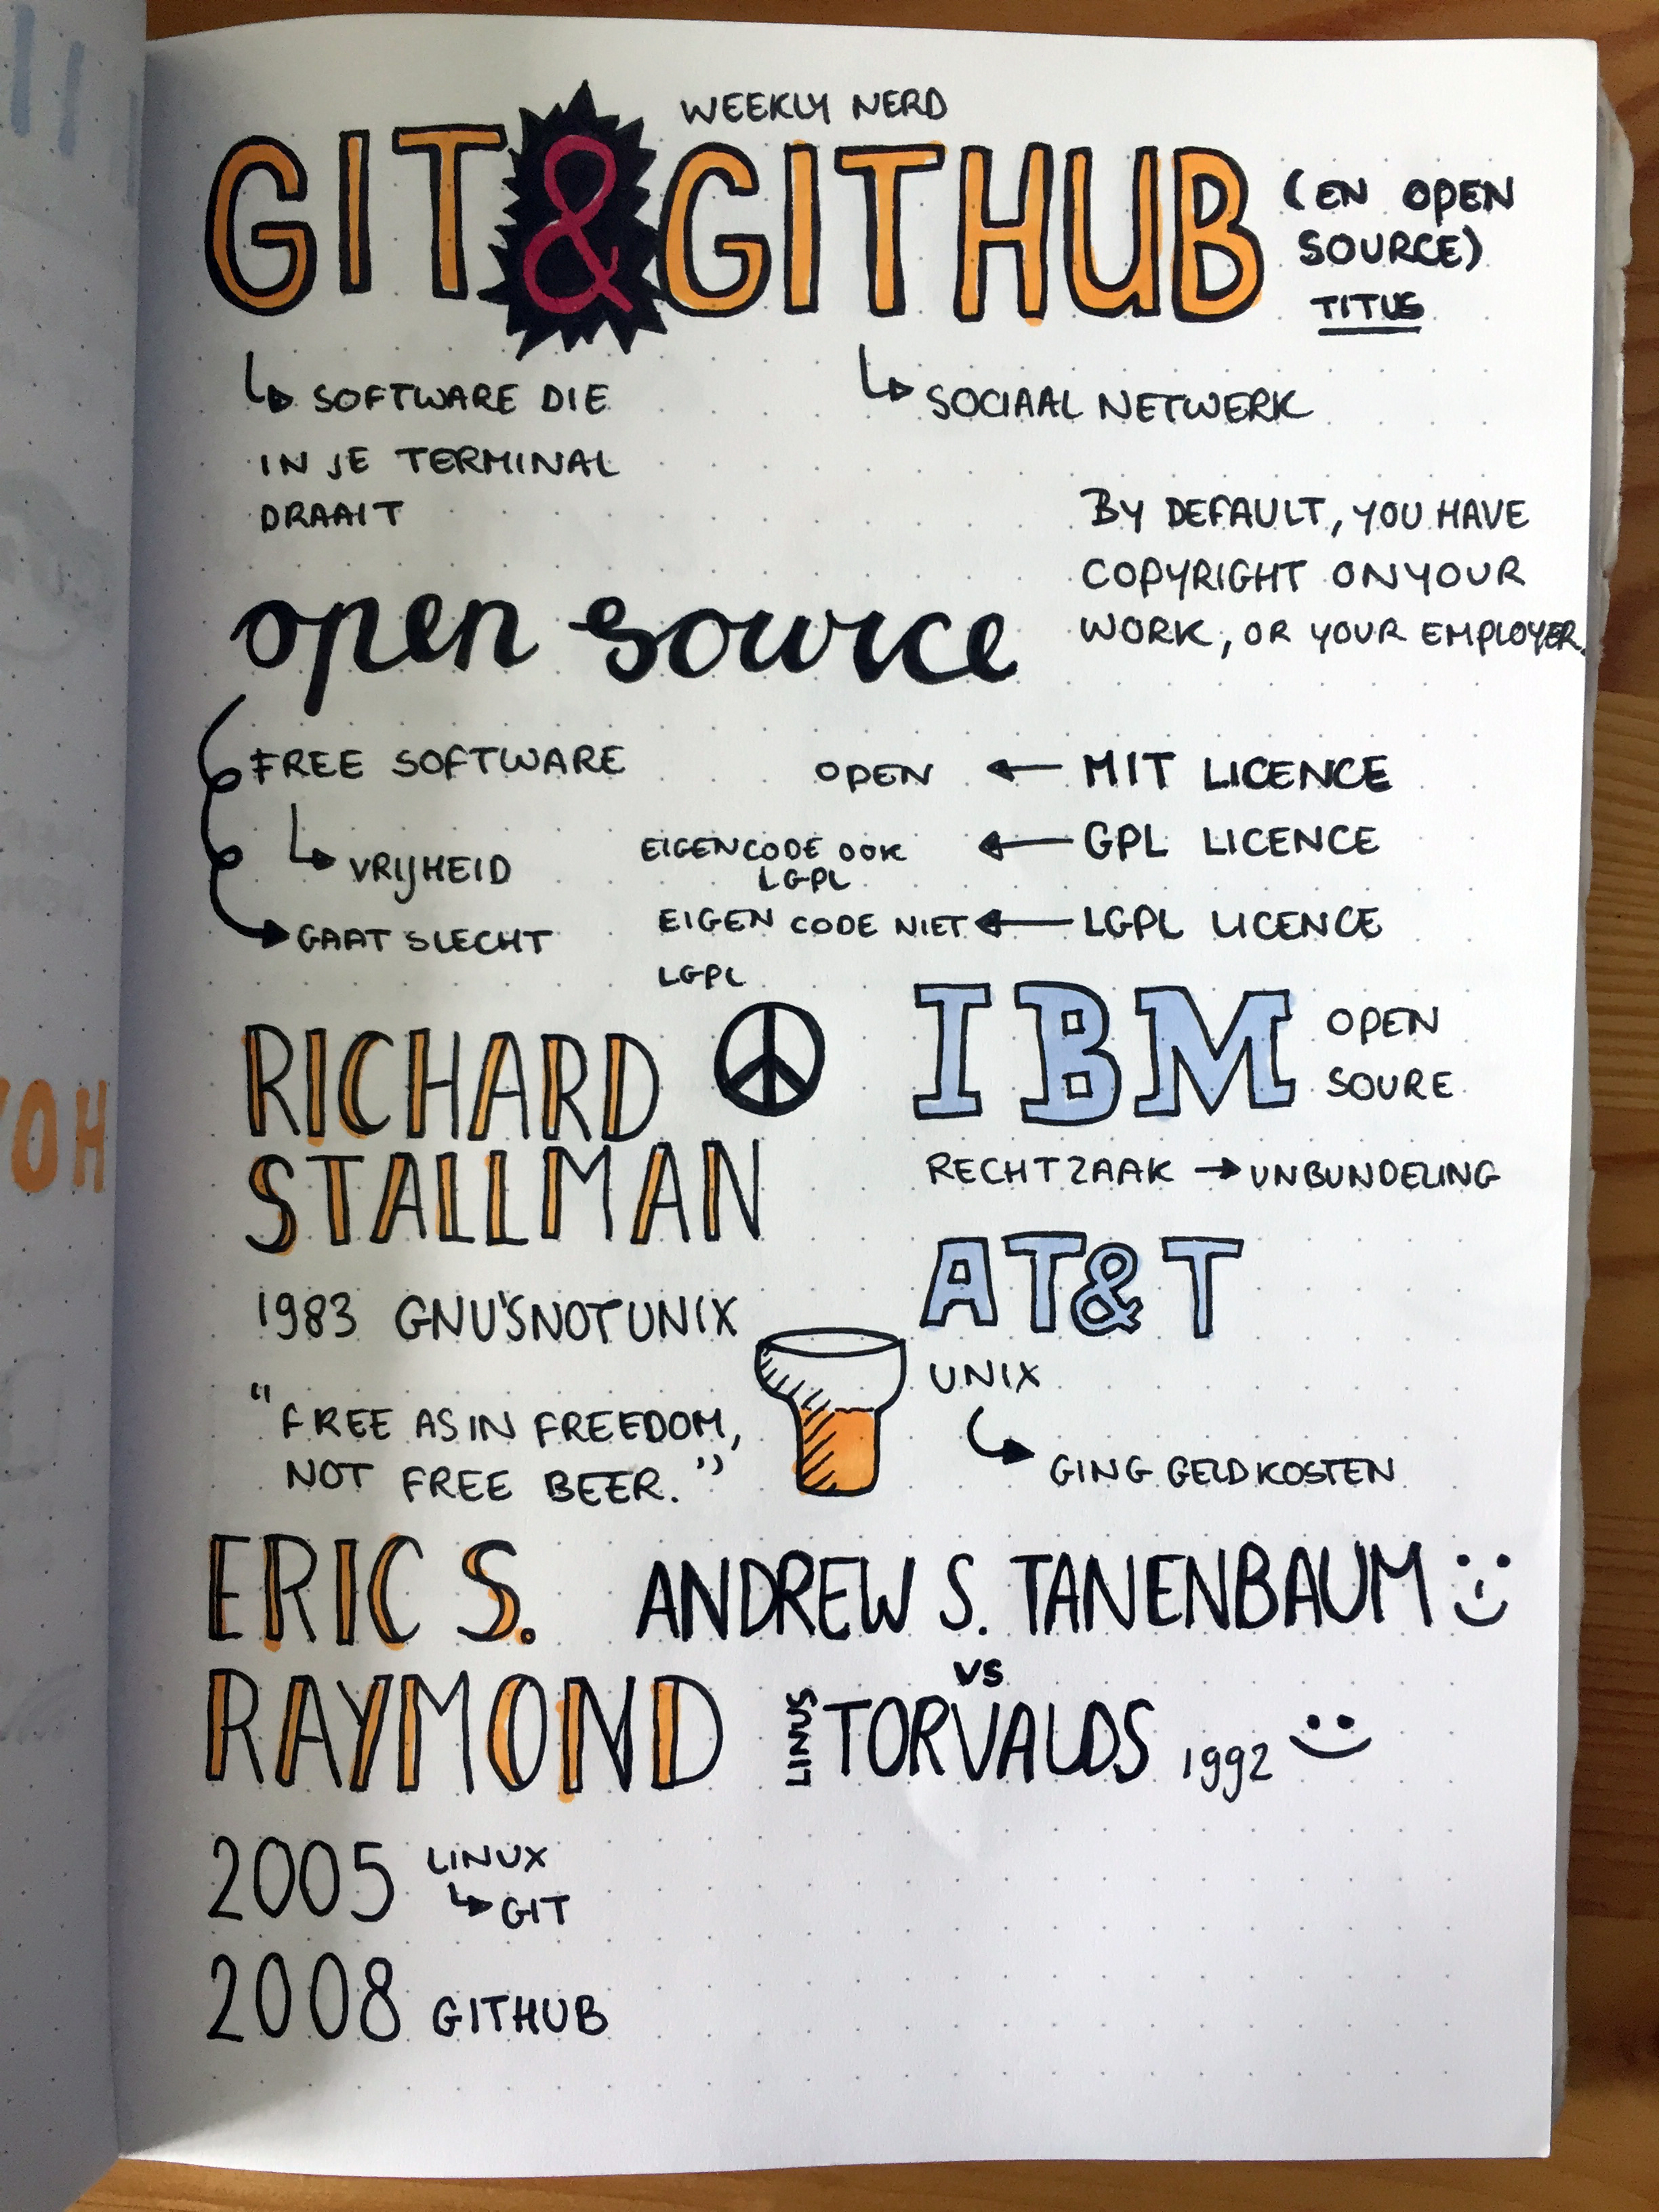 WEEKLY NERD
GIT & GITHUB (EN OPEN
SOURCE)
TITUS
SOFTWARE DIE
IN JE TERMINAL
DRAAIT
SOCIAAL NETWERK
BY DEFAULT, YOU HAVE
COPYRIGHT ON YOUR
WORK, OR YOUR EMPLOYER.
open source
FREE SOFTWARE
VRIJHEID
GAAT SLECHT
OPEN ← MIT LICENCE
EIGEN CODE OOK ← GPL LICENCE
LGPL
EIGEN CODE NIET ← LGPL LICENCE
LGPL
RICHARD
STALLMAN
1983 GNU'S NOT UNIX
"FREE AS IN FREEDOM,
NOT FREE BEER."
IBM OPEN
SOURE
RECHTZAAK → UNBUNDELING
AT&T
UNIX
GING GELD KOSTEN
ERIC S.
RAYMOND
ANDREW S. TANENBAUM
VS
LINUS TORVALDS 1992
2005 LINUX
GIT
2008 GITHUB
HOY